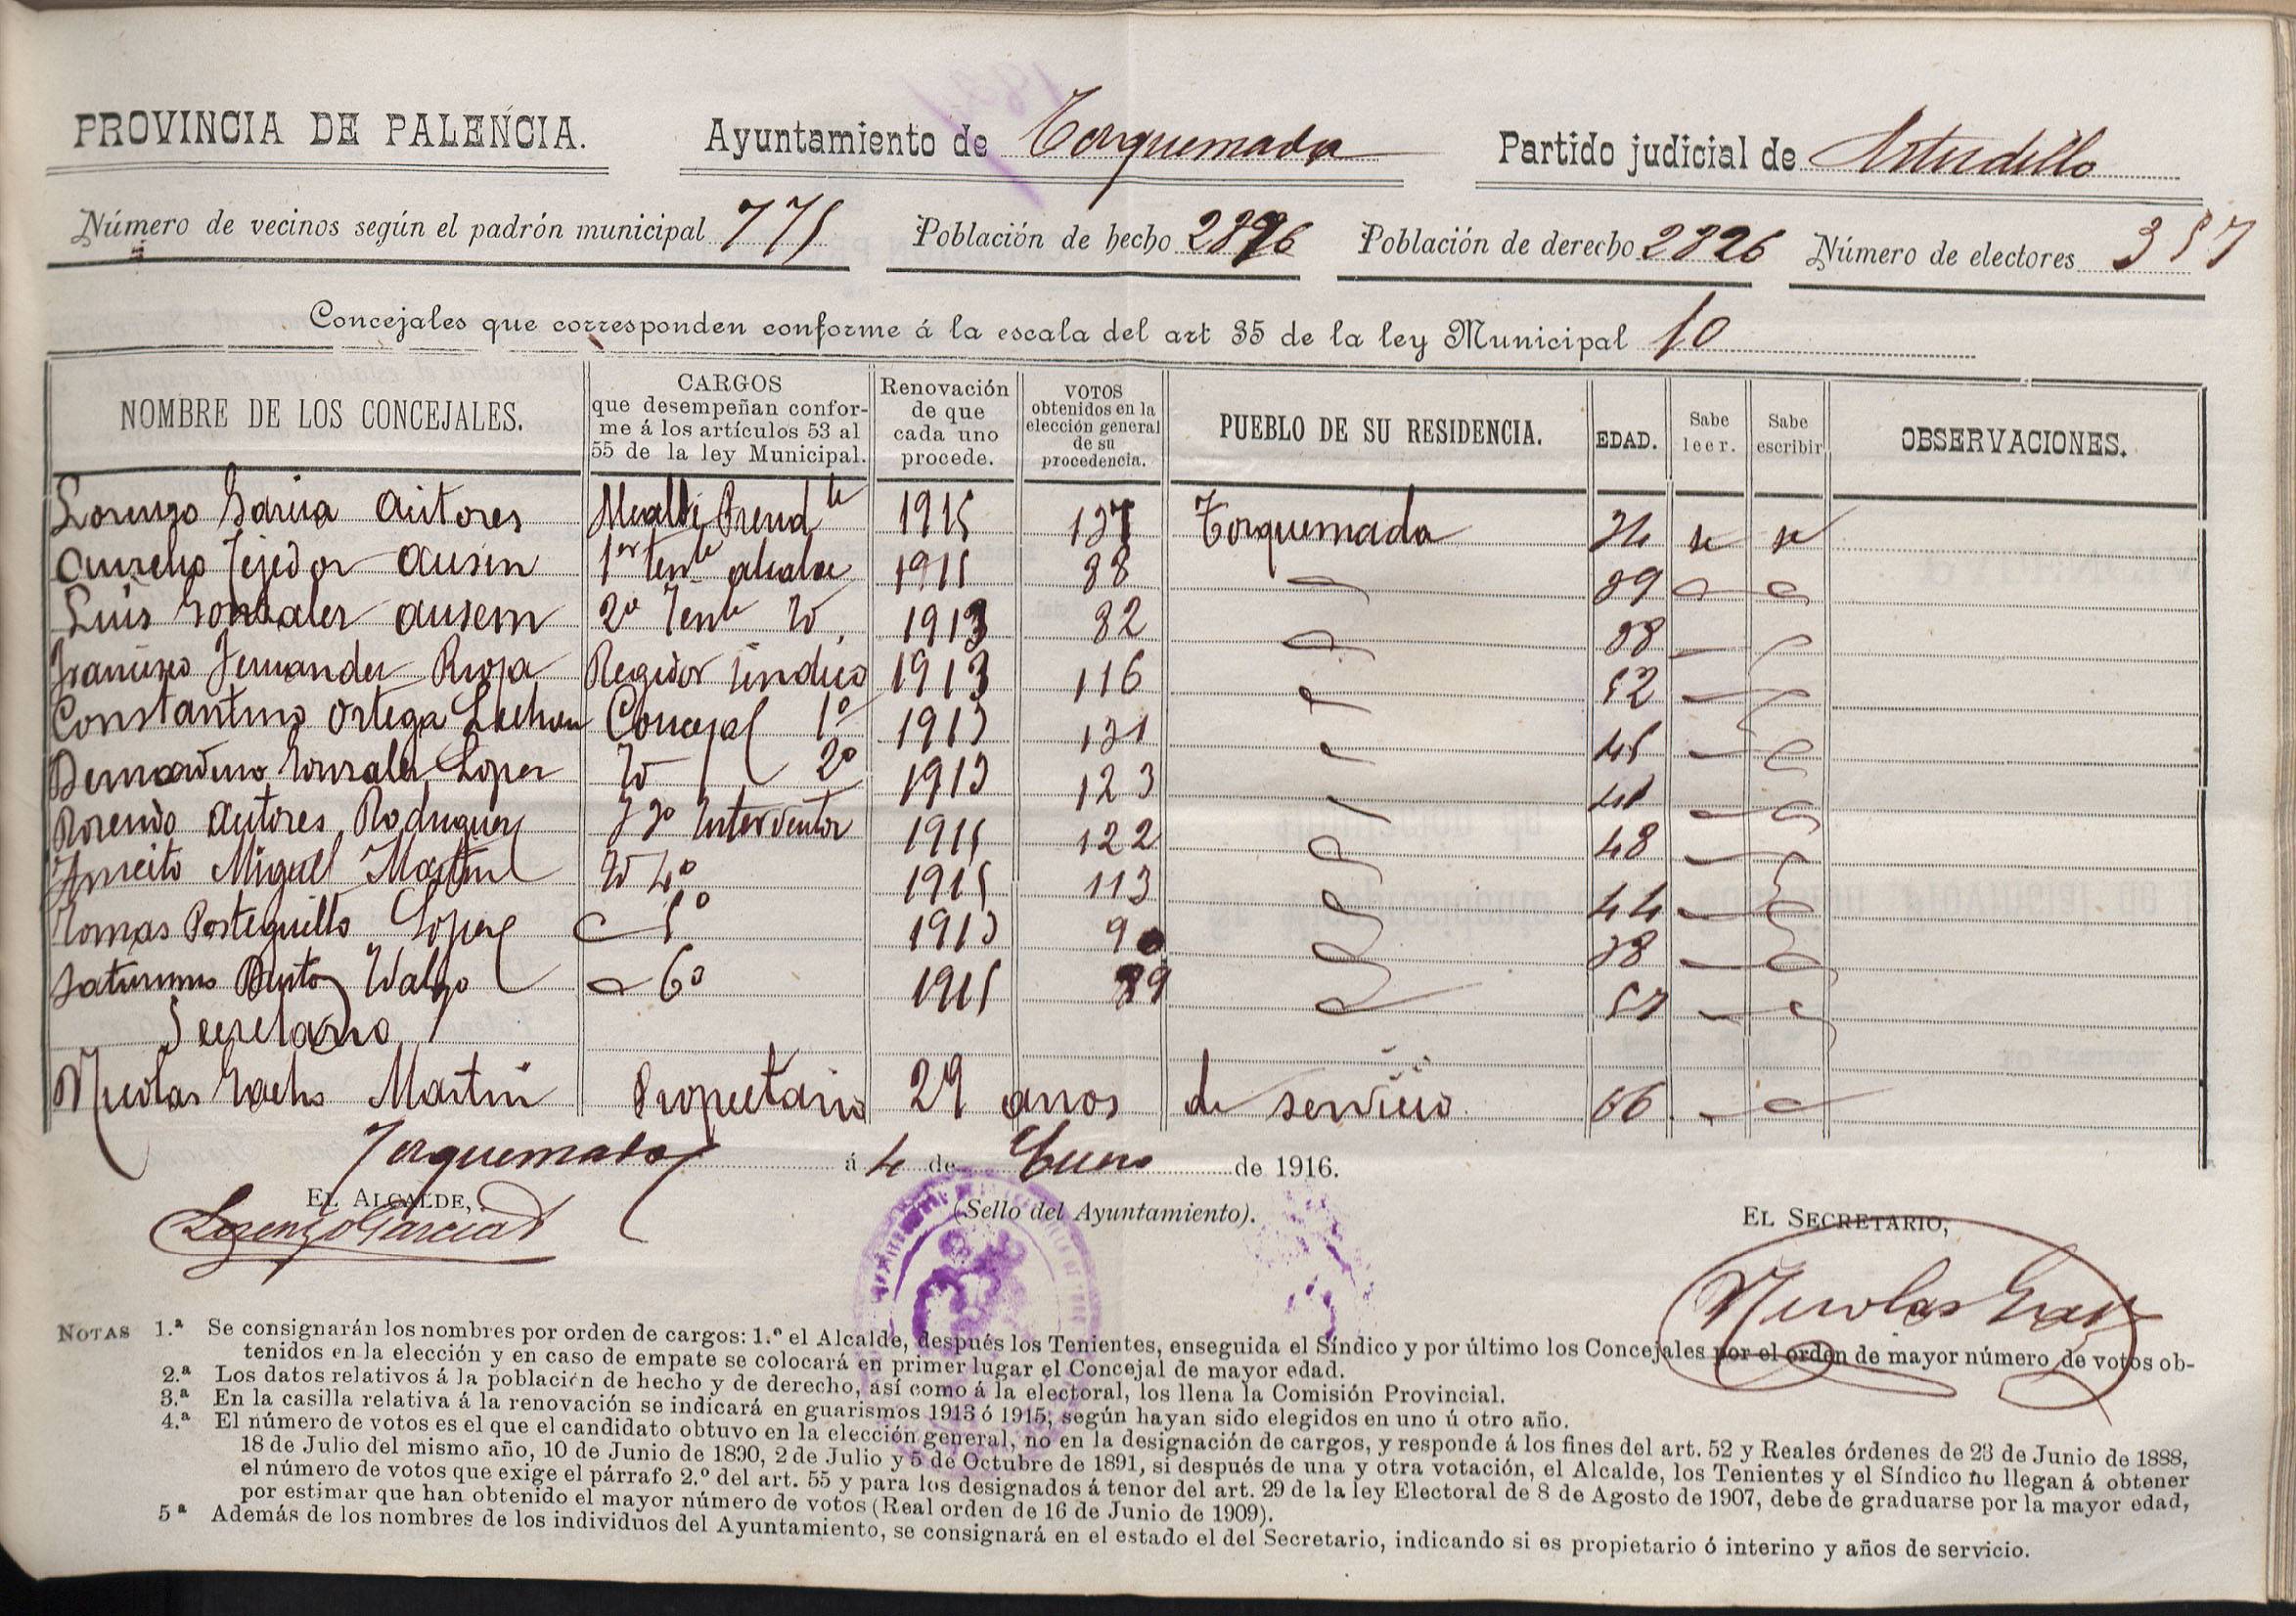 PROVINCIA DE PALENCIA. Ayuntamiento de Torquemada Partido judicial de Astudillo
Número de vecinos según el padrón municipal 775 Población de hecho 2896 Población de derecho 2826 Número de electores 357
Concejales que corresponden conforme á la escala del art 35 de la ley Municipal 10
NOMBRE DE LOS CONCEJALES. CARGOS que desempeñan conforme á los artículos 53 al 55 de la ley Municipal. Renovación de que cada uno procede. VOTOS obtenidos en la elección general de su procedencia. PUEBLO DE SU RESIDENCIA. EDAD. Sabe leer. Sabe escribir OBSERVACIONES.
Lorenzo Garcia Autores Alcalde Presid te 1915 137 Torquemada si si
Aurelio Tejedor Ausin 1er tente alcalde 1915 88 39
Luis Gonzalez Ausin 2o Tente Yo 1913 82 38
Francisco Fernandez Rioja Regidor Sindico 1913 116 52
Constantino Ortega Concejal 1o 1913 131 45
Bernardino Gonzalez Lopez Yo 2o 1913 123
Rosendo Autores Rodriguez 3o Interventor 1915 122 48
Aniceto Miguel Martin Yo 4o 1915 113 44
Tomas Posteguillo Lopez 5o 1913 90 38
Saturnino 6o 1915 89 57
Secretario
Nicolas Martin Propietario 29 años de servicio 66
Torquemada á 4 de Enero de 1916.
EL ALCALDE, (Sello del Ayuntamiento). EL SECRETARIO,
Lorenzo Garcia
Nicolas
NOTAS 1.ª Se consignarán los nombres por orden de cargos: 1.º el Alcalde, después los Tenientes, enseguida el Síndico y por último los Concejales por el orden de mayor número de votos ob-
tenidos en la elección y en caso de empate se colocará en primer lugar el Concejal de mayor edad.
2.ª Los datos relativos á la población de hecho y de derecho, así como á la electoral, los llena la Comisión Provincial.
3.ª En la casilla relativa á la renovación se indicará en guarismos 1913 ó 1915; según hayan sido elegidos en uno ú otro año.
4.ª El número de votos es el que el candidato obtuvo en la elección general, no en la designación de cargos, y responde á los fines del art. 52 y Reales órdenes de 23 de Junio de 1888,
18 de Julio del mismo año, 10 de Junio de 1890, 2 de Julio y 5 de Octubre de 1891, si después de una y otra votación, el Alcalde, los Tenientes y el Síndico no llegan á obtener
el número de votos que exige el párrafo 2.º del art. 55 y para los designados á tenor del art. 29 de la ley Electoral de 8 de Agosto de 1907, debe de graduarse por la mayor edad,
por estimar que han obtenido el mayor número de votos (Real orden de 16 de Junio de 1909).
5ª Además de los nombres de los individuos del Ayuntamiento, se consignará en el estado el del Secretario, indicando si es propietario ó interino y años de servicio.